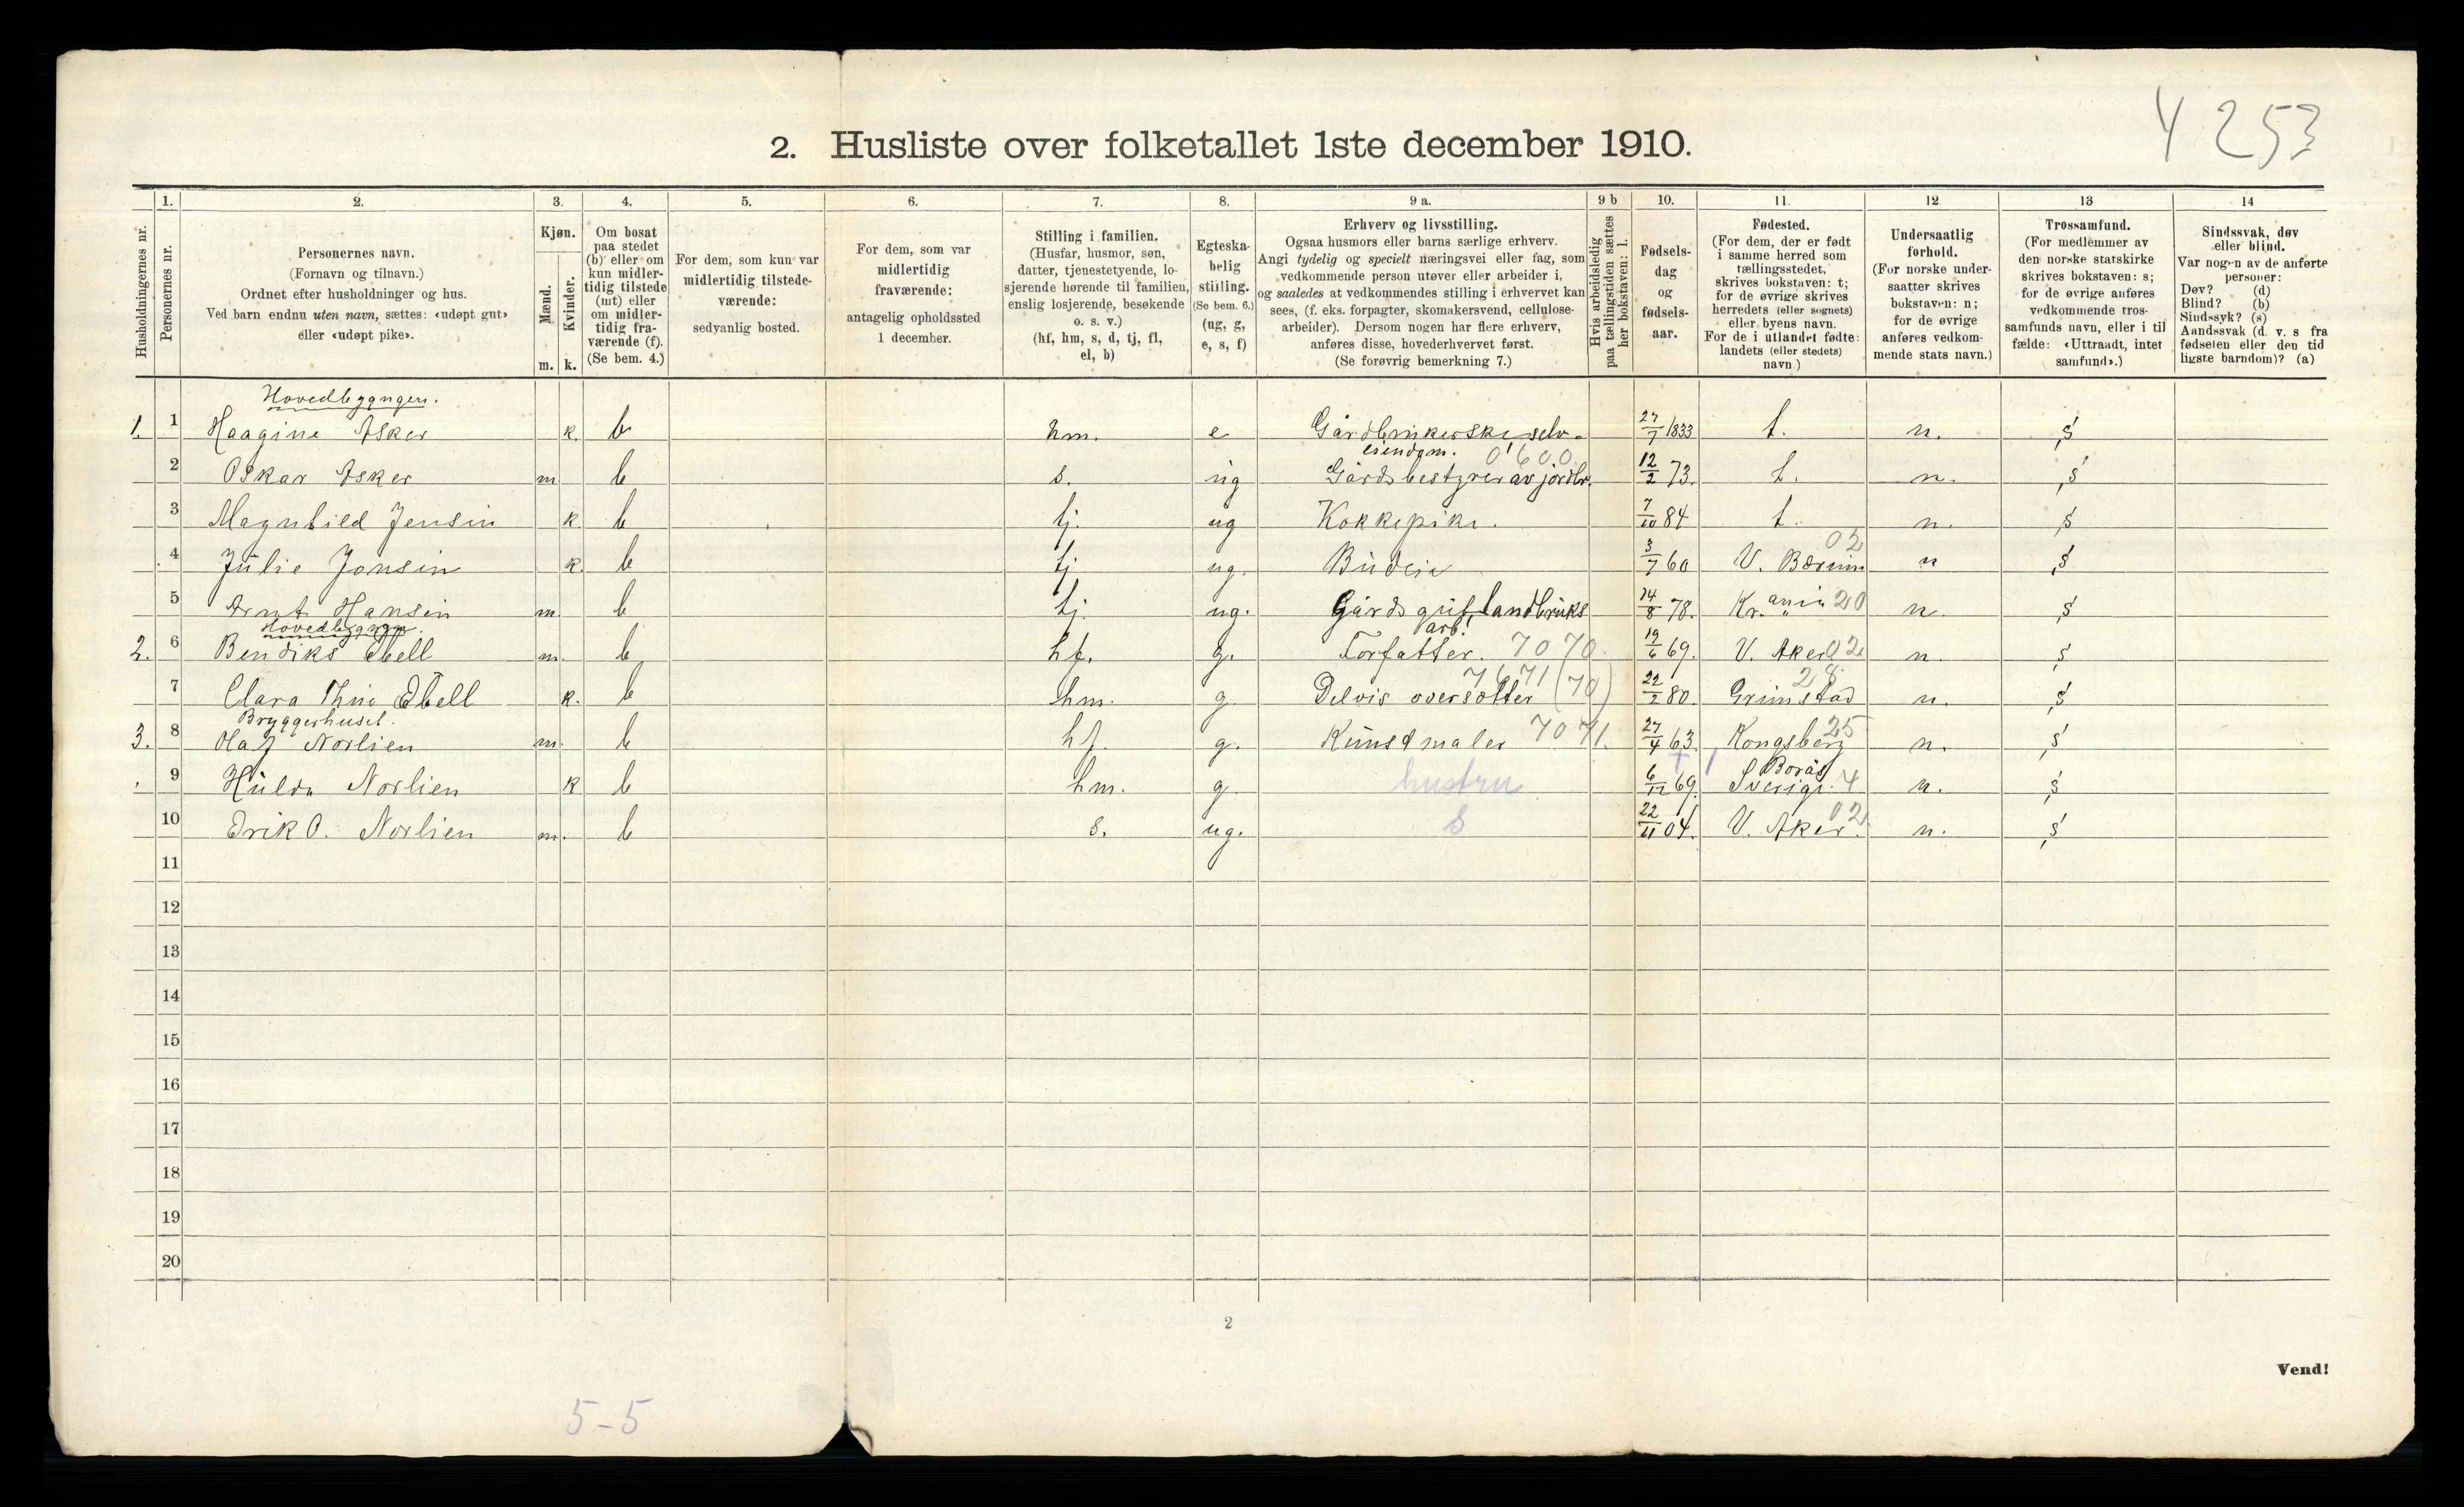 4 253
2. Husliste over folketallet 1ste december 1910.
Husholdningernes nr.
1.
Personernes nr.
2.
Personernes navn.
(Fornavn og tilnavn.)
Ordnet efter husholdninger og hus.
Ved barn endnu uten navn, sættes: «udøpt gut»
eller «udøpt pike».
3.
Kjøn.
Mænd.
Kvinder.
m. k.
4.
Om bosat
paa stedet
(b) eller om
kun midler-
tidig tilstede
(mt) eller
om midler-
tidig fra-
værende (f).
(Se bem. 4.)
5.
For dem, som kun var
midlertidig tilstede-
værende:
sedvanlig bosted.
6.
For dem, som var
midlertidig
fraværende:
antagelig opholdssted
1 december.
7.
Stilling i familien.
(Husfar, husmor, søn,
datter, tjenestetyende, lo-
sjerende hørende til familien,
enslig losjerende, besøkende
o. s. v.)
(hf, hm, s, d, tj, fl,
el, b)
8.
Egteska-
belig
stilling.
(Se bem. 6.)
(ug, g,
e, s, f)
9 a.
Erhverv og livsstilling.
Ogsaa husmors eller barns særlige erhverv.
Angi tydelig og specielt næringsvei eller fag, som
vedkommende person utøver eller arbeider i,
og saaledes at vedkommendes stilling i erhvervet kan
sees, (f. eks. forpagter, skomakersvend, cellulose-
arbeider). Dersom nogen har flere erhverv,
anføres disse, hovederhvervet først.
(Se forøvrig bemerkning 7.)
9 b
Hvis arbeidsledig
paa tællingstiden sættes
her bokstaven: l.
10.
Fødsels-
dag
og
fødsels-
aar.
11.
Fødested.
(For dem, der er født
i samme herred som
tællingsstedet,
skrives bokstaven: t;
for de øvrige skrives
herredets (eller sognets)
eller byens navn.
For de i utlandet fødte:
landets (eller stedets)
navn.)
12.
Undersaatlig
forhold.
(For norske under-
saatter skrives
bokstaven: n;
for de øvrige
anføres vedkom-
mende stats navn.)
13
Trossamfund.
(For medlemmer av
den norske statskirke
skrives bokstaven: s;
for de øvrige anføres
vedkommende tros-
samfunds navn, eller i til
fælde: «Uttraadt, intet
samfund».)
14
Sindssvak, døv
eller blind.
Var nogen av de anførte
personer:
Døv? (d)
Blind? (b)
Sindssyk? (s)
Aandssvak (d. v. s. fra
fødselen eller den tid
ligste barndom)? (a)
Hovedbygngen.
1. 1 Haagine Asker k. b hm. e Gårdbrukerske selv- 27/7 1833 t. n. s
eiendom. 0'600
2 Oskar Asker m b s. ug Gårdsbestyrer av jordbr. 12/2 73. t. n. s
3 Magnhild Jensen k. b tj. ug Kokkepike. 7/10 84 t. n. s
02
4 Julie Jonsen k. b tj ug. Budeie 3/7 60 V. Bærum n s
5 Arnt Hansen m b tj. ug. Gårdsgut, landbruks 14/8 78. Kr.ania 20 n. s
Hovedbygngn. arb.
2. 6 Bendiks Ebell m. b hf. g. Forfatter. 7070. 19/6 69. V. Aker 02 n. s
7671 (70) 28
7 Clara Thue Ebell k. b hm. g. Delvis oversætter 22/2 80. Grimstad n. s
Bryggerhuset.
3. 8 Olaf Norlien m. b hf. g. Kunstmaler 7071. 27/4 63. Kongsberg 25 n. s
Borås
9 Hulda Norlien k b hm. g. hustru 6/12 69. Sverige. 4 n. s
10 Erik O. Norlien m. b s. ug. s 22/11 04. V. Aker. 02 n. s
11
12
13
14
15
16
17
18
19
20
2
Vend!
5-5